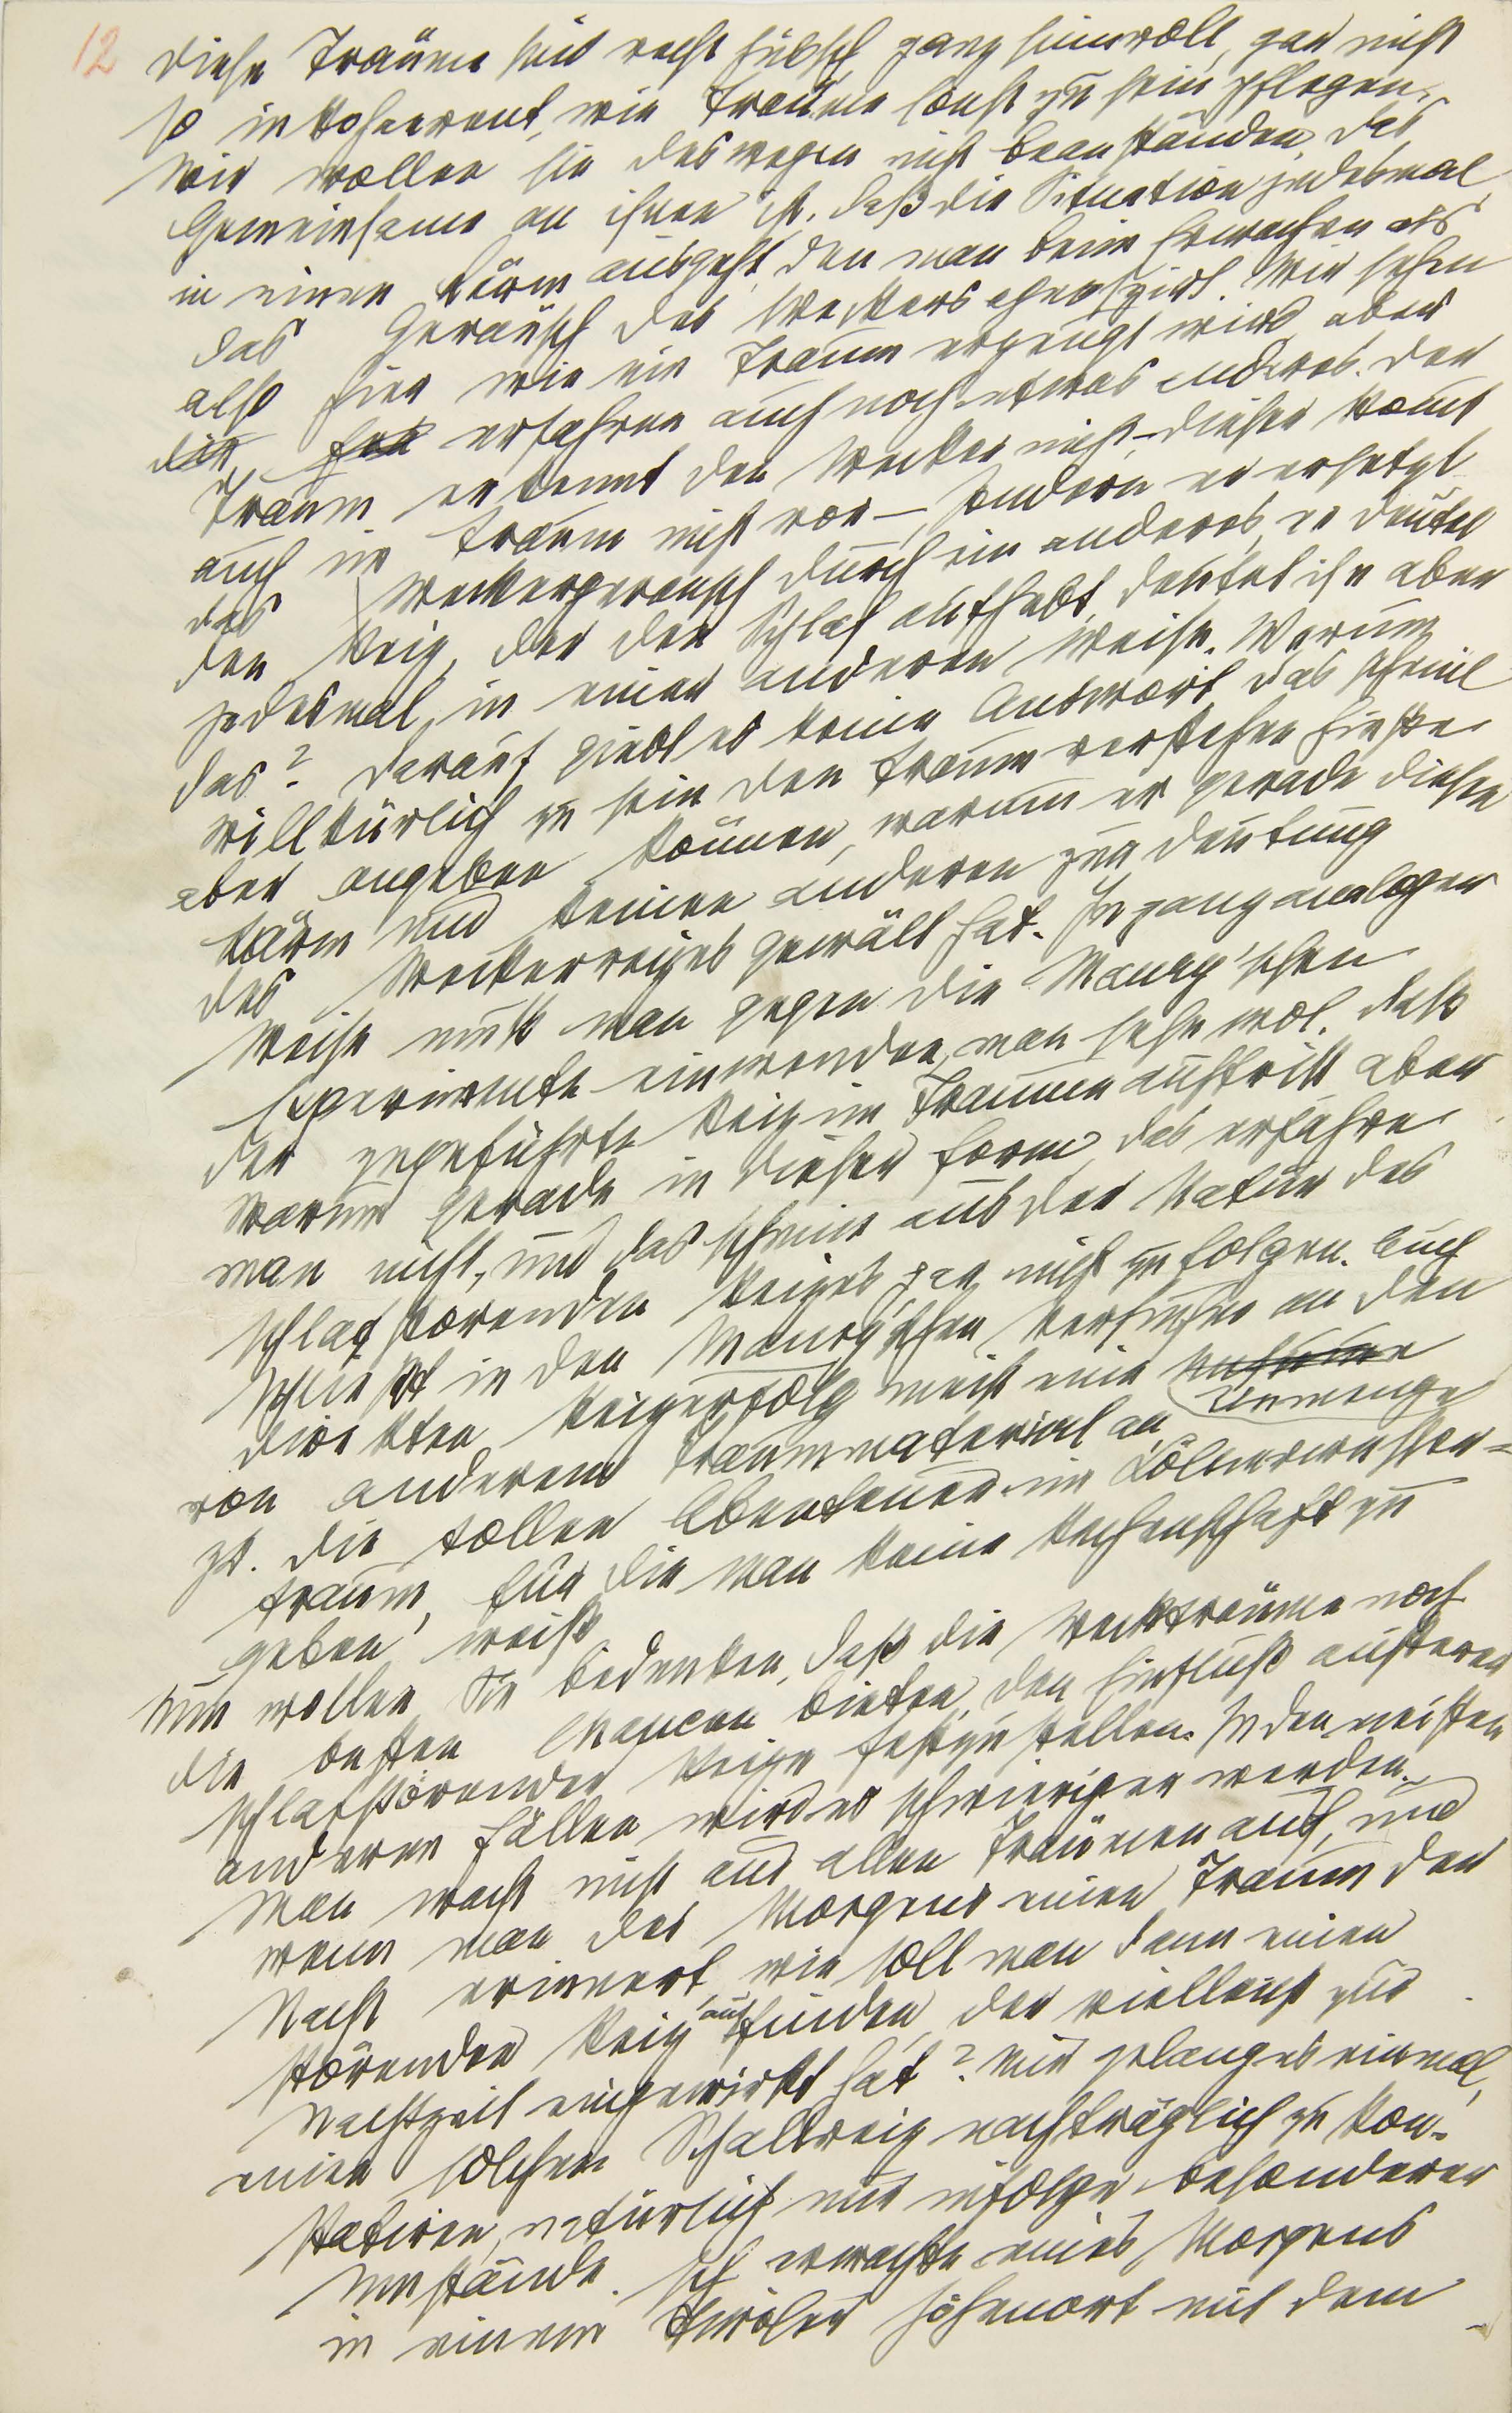 12
diese Träume sind recht hübsch ganz sinnvoll, gar nicht
so inkohaerent, wie Träume sonst zu sein pflegen.
Wir wollen sie deswegen nicht beanständen das
Gemeinsame an ihnen ist, daß die Situation jedesmal
in einen Lärm ausgeht, den man beim Erwachen als
das Geräusch des Weckers agnosziert. Wir sehen
also hier wie ein Traum erzeugt wird, aber
erfahren auch noch etwas anderes. der
Traum erkennt den Wecker nicht – dieser komt
auch im Traum nicht vor –, sondern er ersetzt
das Weckergeräusch durch ein anderes, er deutet
den Reiz, der den Schlaf aufhebt, deutet ihn aber
jedesmal in einer anderen Weise. Warum
das? darauf giebt es keine Antwort, das scheint
willkürlich zu sein den Traum verstehen hieße
aber angeben können, warum er gerade diesen
Lärm und keinen anderen zur deutung
des Weckerreizes gewält hat. In ganz analoger
Weise muß man gegen die Maury'schen
Experimente einwenden, man sehe wol, daß
der zugeführte Reiz im Traume auftritt aber
warum gerade in dieser Form das erfahre
man nicht, und das scheint aus der Natur des
schlafstörenden Reizes gar nicht zu folgen. Auch
schließt in den Maury'schen Versuchen an den
direkten Reizerfolg meist eine Unmenge
von anderem Traummaterial an
zB. die tollen Abenteuer im Kölnerwasser=
traum, für die man keine Rechenschaft zu
geben weiß
Nun wollen Sie bedenken, daß die Weckträume noch
die besten Chancen bieten, den Einfluß äußerer
schlafstörender Reize festzustellen. In den meisten
anderen Fällen wird es schwieriger werden.
Man wacht nicht aus allen Träumen auf, und
wenn man des Morgens einen Traum der
Nacht erinnert, wie soll man dann einen
störenden Reiz auffinden, der vielleicht zur
Nachtzeit eingewirkt hat? Mir gelang es einmal,
einen solchen Schallreiz nachträglich zu kon-
statiren, natürlich nur infolge besonderer
Umstände. Ich erwachte eines Morgens
in einem tiroler Höhenort mit dem